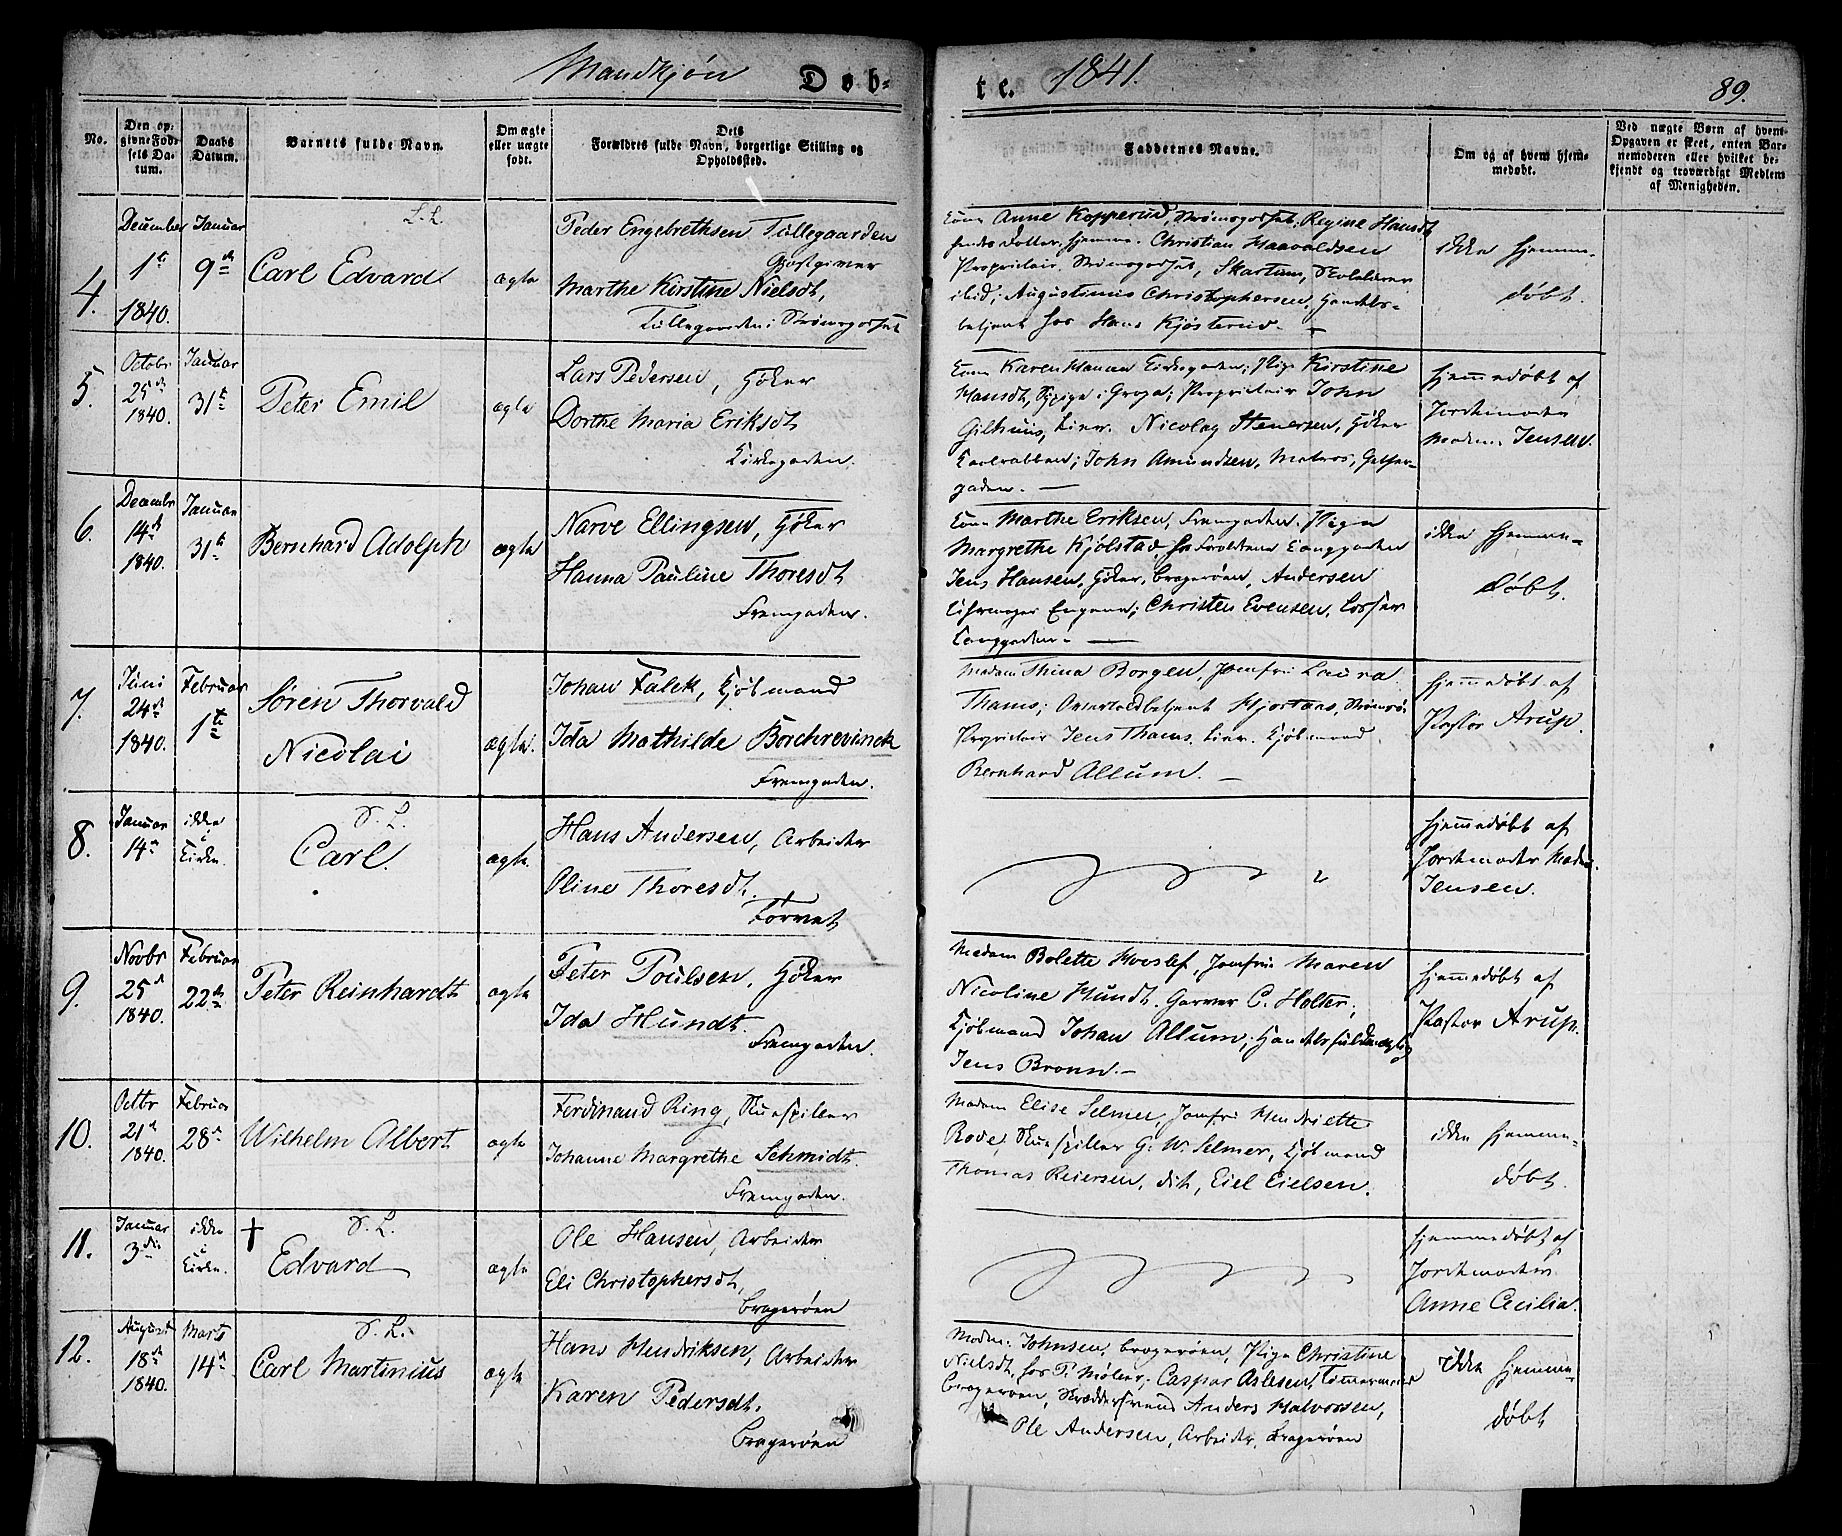 Mandkjøn Døb-
te. 1841. 89.
No.
Den op-
givne Fød-
sels Da-
tum.
Daabs
Datum.
Barnets fulde Navn.
Om ægte
eller uægte
født.
Dets
Forældres fulde Navn, borgerlige Stilling og
Opholdssted.
Faddernes Navne.
Om og af hvem hjem-
medøbt.
Ved uægte Børn af hvem
Opgaven er skeet, enten Bar-
nemoderen eller hvilket be-
kjendt og troværdigt Medlem
af Menigheden.
4.
December
1ste
1840.
Januar
9de
S. L.
Carl Edvard
ægte
Peder Engebrethsen Tullegaarden
Gjæstgiver
Marthe Kirstine Nielsdt,
Tullegaarden i Strømsgodset
Kone Anne Kopperud, Strømsgodset, Regine Hansdt
hendes Datter, hjemme. Christian Haavaldsen
Proprietair, Strømsgodset, Skartum, Skolelærer
ibid, Augustinus Christophersen, Handels-
betjent hos Hans Kjøsterud. —
ikke hjemme-
døbt.
5.
Octobr
25de
1840.
Januar
31te
Peter Emil
ægte
Lars Pedersen, Høker
Dorthe Maria Eriksdt
Kirkegaden.
Kone Karen Kirkegaden; Pige Kirstine
Hansdt, Proprietair John
Gilhuus, Lier. Nicolay Stenersen, Høker
John Amundsen, Matros,
gaden. —
hjemmedøbt af
Jordemoder
Madm. Jensen.
6.
Decembr
14de
1840.
Januar
31te
Bernhard Adolph
ægte
Narve Ellingsen, Høker
Hanna Pauline Thoresdt
Fremgaden.
Kone Marthe Eriksen, Fremgaden. Pige
Margrethe Kjølstad, Langgaden
Jens Hansen, Høker, Bragerøen, Andersen
Engene; Christen Evensen, Losser
Langgaden. —
ikke hjemme-
døbt.
7.
Juni
24de
1840.
Februar
1ste
Søren Thorvald
Nicolai
ægte.
Johan Falck, Kjøbmand
Ida Mathilde Borchrevinck
Fremgaden.
Madam Thina Borgen, Jomfru Laura
Thams; Overtoldbetjent Hjortaas, Strømsø,
Proprietair Jens Thams, Lier. Kjøbmand
Bernhard Allum. —
hjemmedøbt af
Pastor Arup.
8.
Januar
14de
ikke
i
Kirke.
S. L.
Carl.
ægte.
Hans Andersen, Arbeider
Oline Thoresdt.
Torvet
hjemmedøbt af
Jordemoder Madm.
Jensen.
9.
Novbr
25de
1840.
Februar
22de
Peter Reinhardt
ægte
Peter Poulsen, Høker
Ida Hundt.
Fremgaden.
Madam Bolette Hvoslef, Jomfru Maren
Nicoline Hundt. Garver C. Holter;
Kjøbmand Johan Allum, Handelsfuldmægtig
Jens Bronn. —
hjemmedøbt af
Pastor Arup.
10.
Octbr
21de
1840.
Februar
28de
Wilhelm Albert
ægte
Ferdinand Ring, Skuespiller
Johanne Margrethe Schmidt.
Fremgaden.
Madam Elise Selmer, Jomfru Hendriette
Rode, Skuespiller G. W. Selmer, Kjøbmand
Thomas Reiersen, dito, Eiel Eielsen.
ikke hjemme-
døbt.
11.
Januar
3die
ikke
i
Kirke.
†
S. L.
Edvard
ægte
Ole Hansen, Arbeider
Eli Christophersdt,
Bragerøen
hjemmedøbt af
Jordemoder
Anne Cecilia.
12.
August
18de
1840.
Marts
14de
S. L.
Carl Martinius
ægte
Hans Hendriksen, Arbeider
Karen Pedersdt.
Bragerøen
Madm. Johnsen, Bragerøen, Pige Christine
Nielsdt, hos P. Møller; Caspar Aslesen, Tømmermand
Bragerøen, Skrædersvend Anders Halvorsen,
Ole Andersen, Arbeider, Bragerøen
ikke hjemme-
døbt